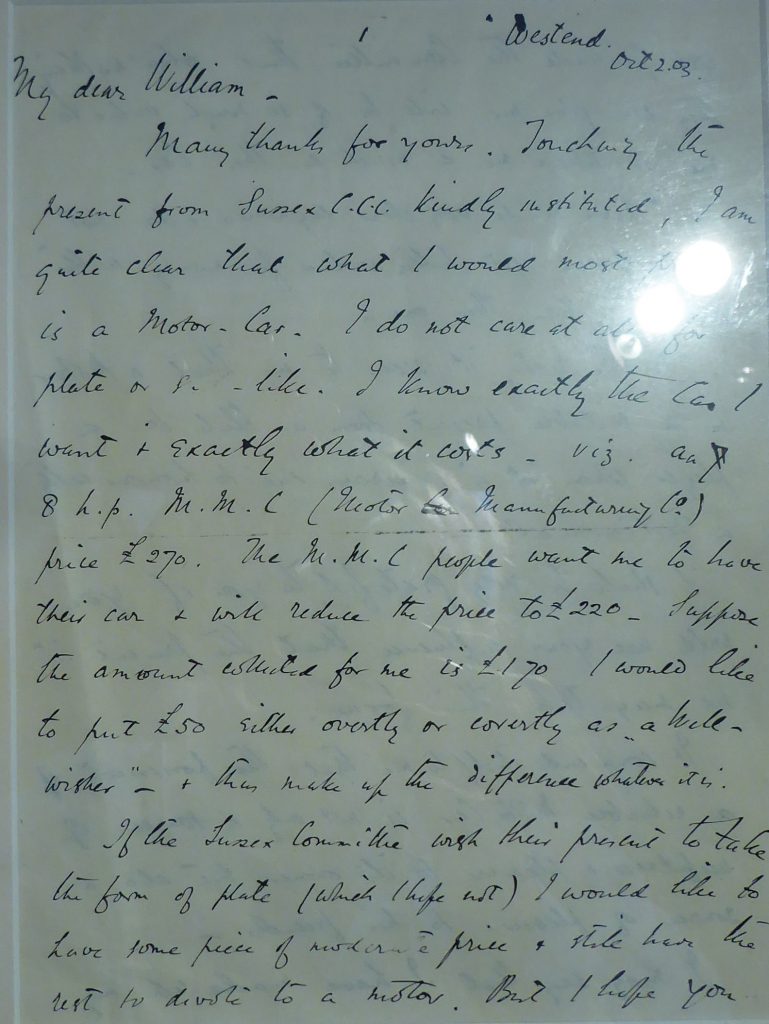 1
Westend.
Oct 2. 03.
My dear William –
Many thanks for yours. Touching the
present from Sussex C.C.C. kindly instituted, I am
quite clear that what I would most
is a Motor-Car. I do not care at all for
plate or -like. I know exactly the Car I
want & exactly what it costs – viz. an
8 h.p. M.M.C (Motor Manufacturing Co)
price £270. The M.M.C people want me to have
their car & will reduce the price to £220 – Suppose
the amount collected for me is £170 I would like
to put £50 either overtly or covertly as "a Well-
wisher" – & thus make up the difference whatever it is.
If the Sussex Committe wish their present to take
the form of plate (which I hope not) I would like to
have some piece of moderate price & still have the
rest to devote to a motor. But I hope you